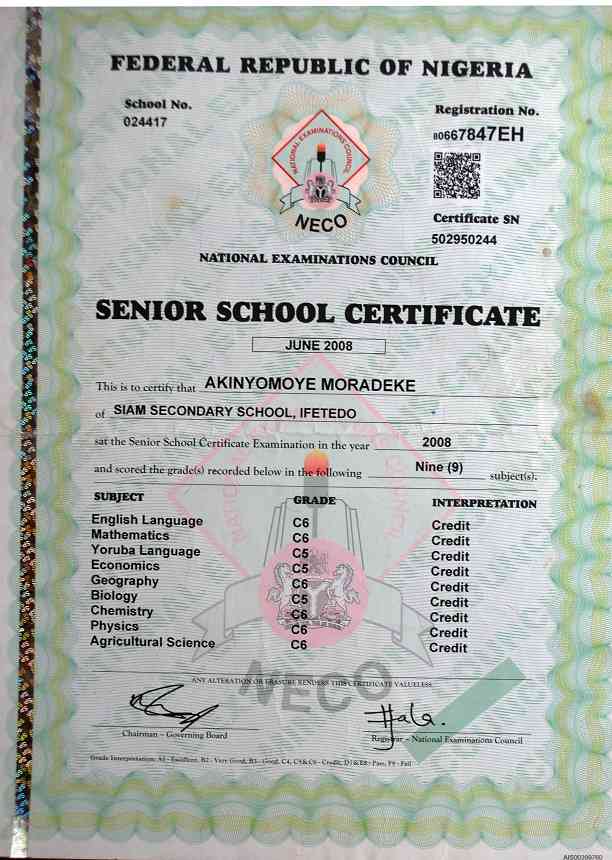 FEDERAL REPUBLIC OF NIGERIA
School No.
024417
Registration No.
80667847EH
NATIONAL EXAMINATIONS COUNCIL
NECO
Certificate SN
502950244
NATIONAL EXAMINATIONS COUNCIL
SENIOR SCHOOL CERTIFICATE
JUNE 2008
This is to certify that AKINYOMOYE MORADEKE
of SIAM SECONDARY SCHOOL, IFETEDO
sat the Senior School Certificate Examination in the year 2008
and scored the grade(s) recorded below in the following Nine (9) subject(s).
SUBJECT GRADE INTERPRETATION
English Language C6 Credit
Mathematics C6 Credit
Yoruba Language C5 Credit
Economics C5 Credit
Geography C6 Credit
Biology C5 Credit
Chemistry C6 Credit
Physics C6 Credit
Agricultural Science C6 Credit
NECO
ANY ALTERATION OR ERASURE RENDERS THIS CERTIFICATE VALUELESS.
Chairman - Governing Board
Registrar - National Examinations Council
Grade Interpretation: A1 - Excellent, B2 - Very Good, B3 - Good, C4, C5 & C6 - Credit, D7 & E8 - Pass, F9 - Fail